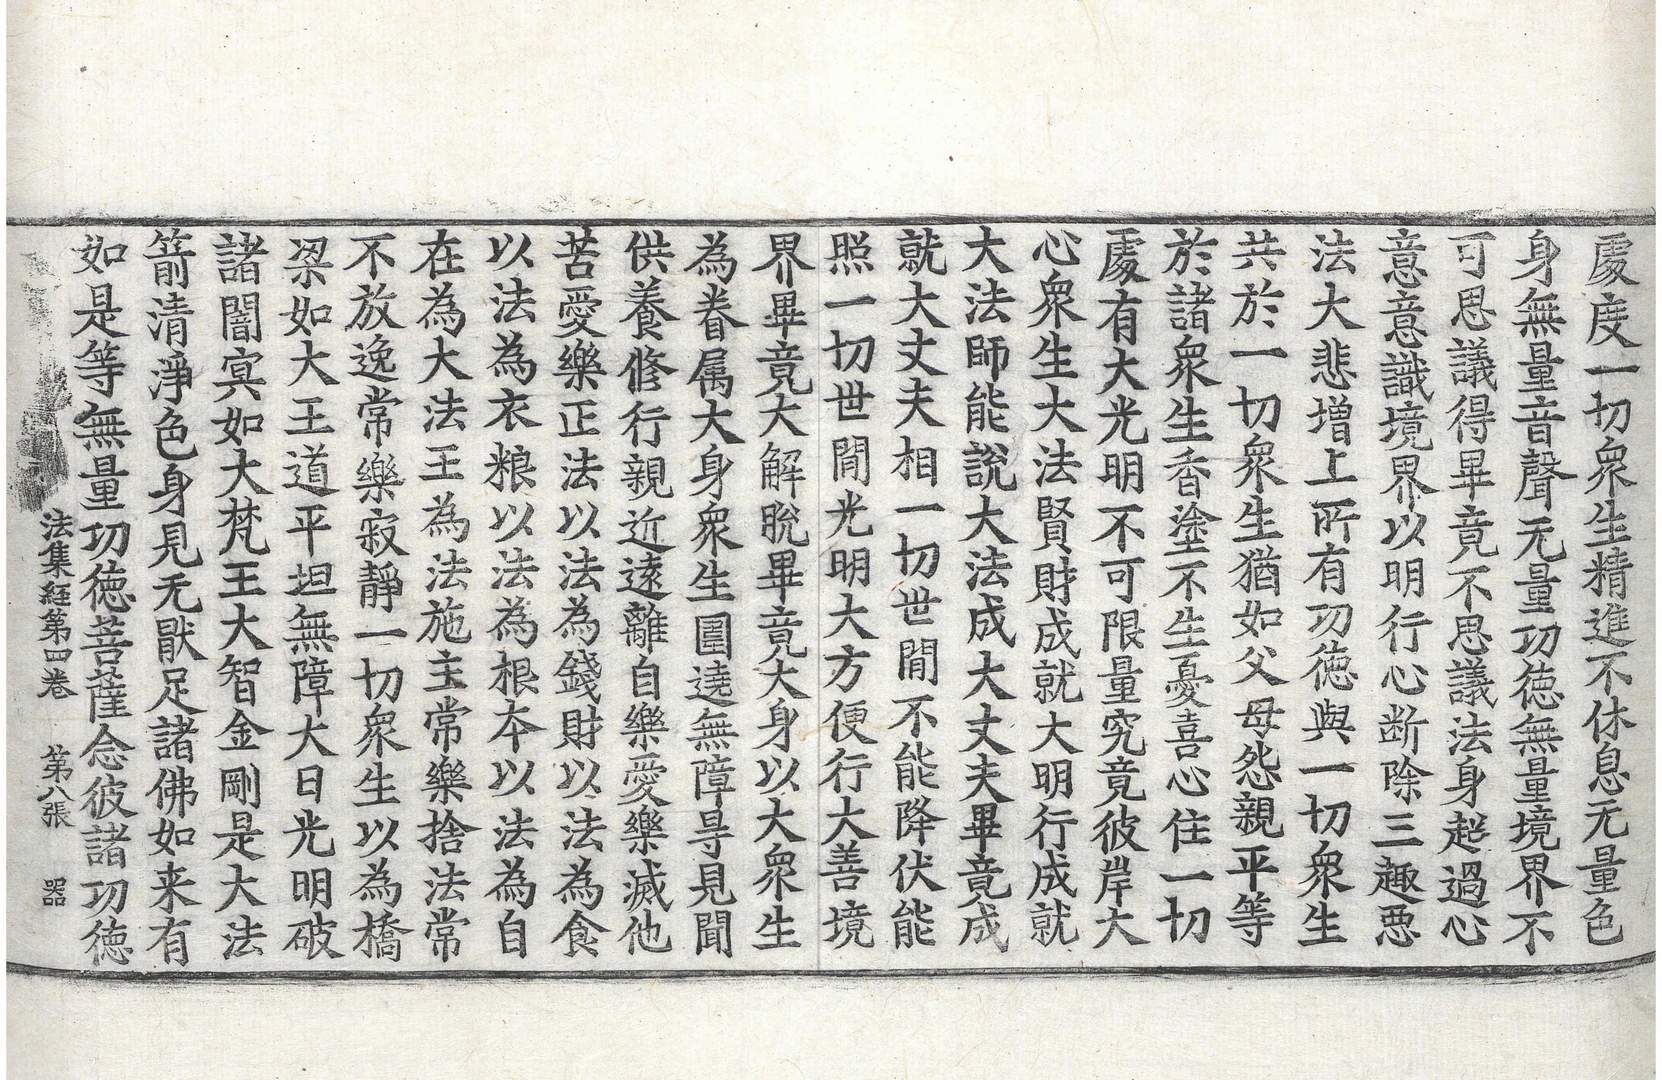 處度一切衆生精進不休息无量色
身無量音聲无量功德無量境界不
可思議得畢竟不思議法身超過心
意意識境界以明行心断除三趣惡
法大悲增上所有功德與一切衆生
共於一切衆生猶如父母怨親平等
於諸衆生香塗不生憂喜心住一切
處有大光明不可限量究竟彼岸大
心衆生大法賢財成就大明行成就
大法師能說大法成大丈夫畢竟成
就大丈夫相一切世閒不能降伏能
照一切世閒光明大方便行大善境
界畢竟大解脫畢竟大身以大衆生
為眷属大身衆生圍遶無障㝵見聞
供養修行親近遠離自樂愛樂滅他
苦愛樂正法以法為錢財以法為食
以法為衣粮以法為根本以法為自
在為大法王為法施主常樂捨法常
不放逸常樂寂靜一切衆生以為橋
梁如大王道平坦無障大日光明破
諸闇冥如大梵王大智金剛是大法
箭清淨色身見无猒足諸佛如来有
如是等無量功德菩薩念彼諸功德
法集経第四卷　第八張　器